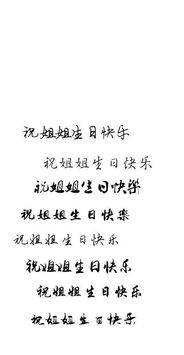 祝姐姐生日快乐
祝姐姐生日快乐
祝姐姐生日快樂
祝姐姐生日快樂
祝姐姐生日快乐
祝姐姐生日快乐
祝姐姐生日快乐
祝姐姐生日快乐